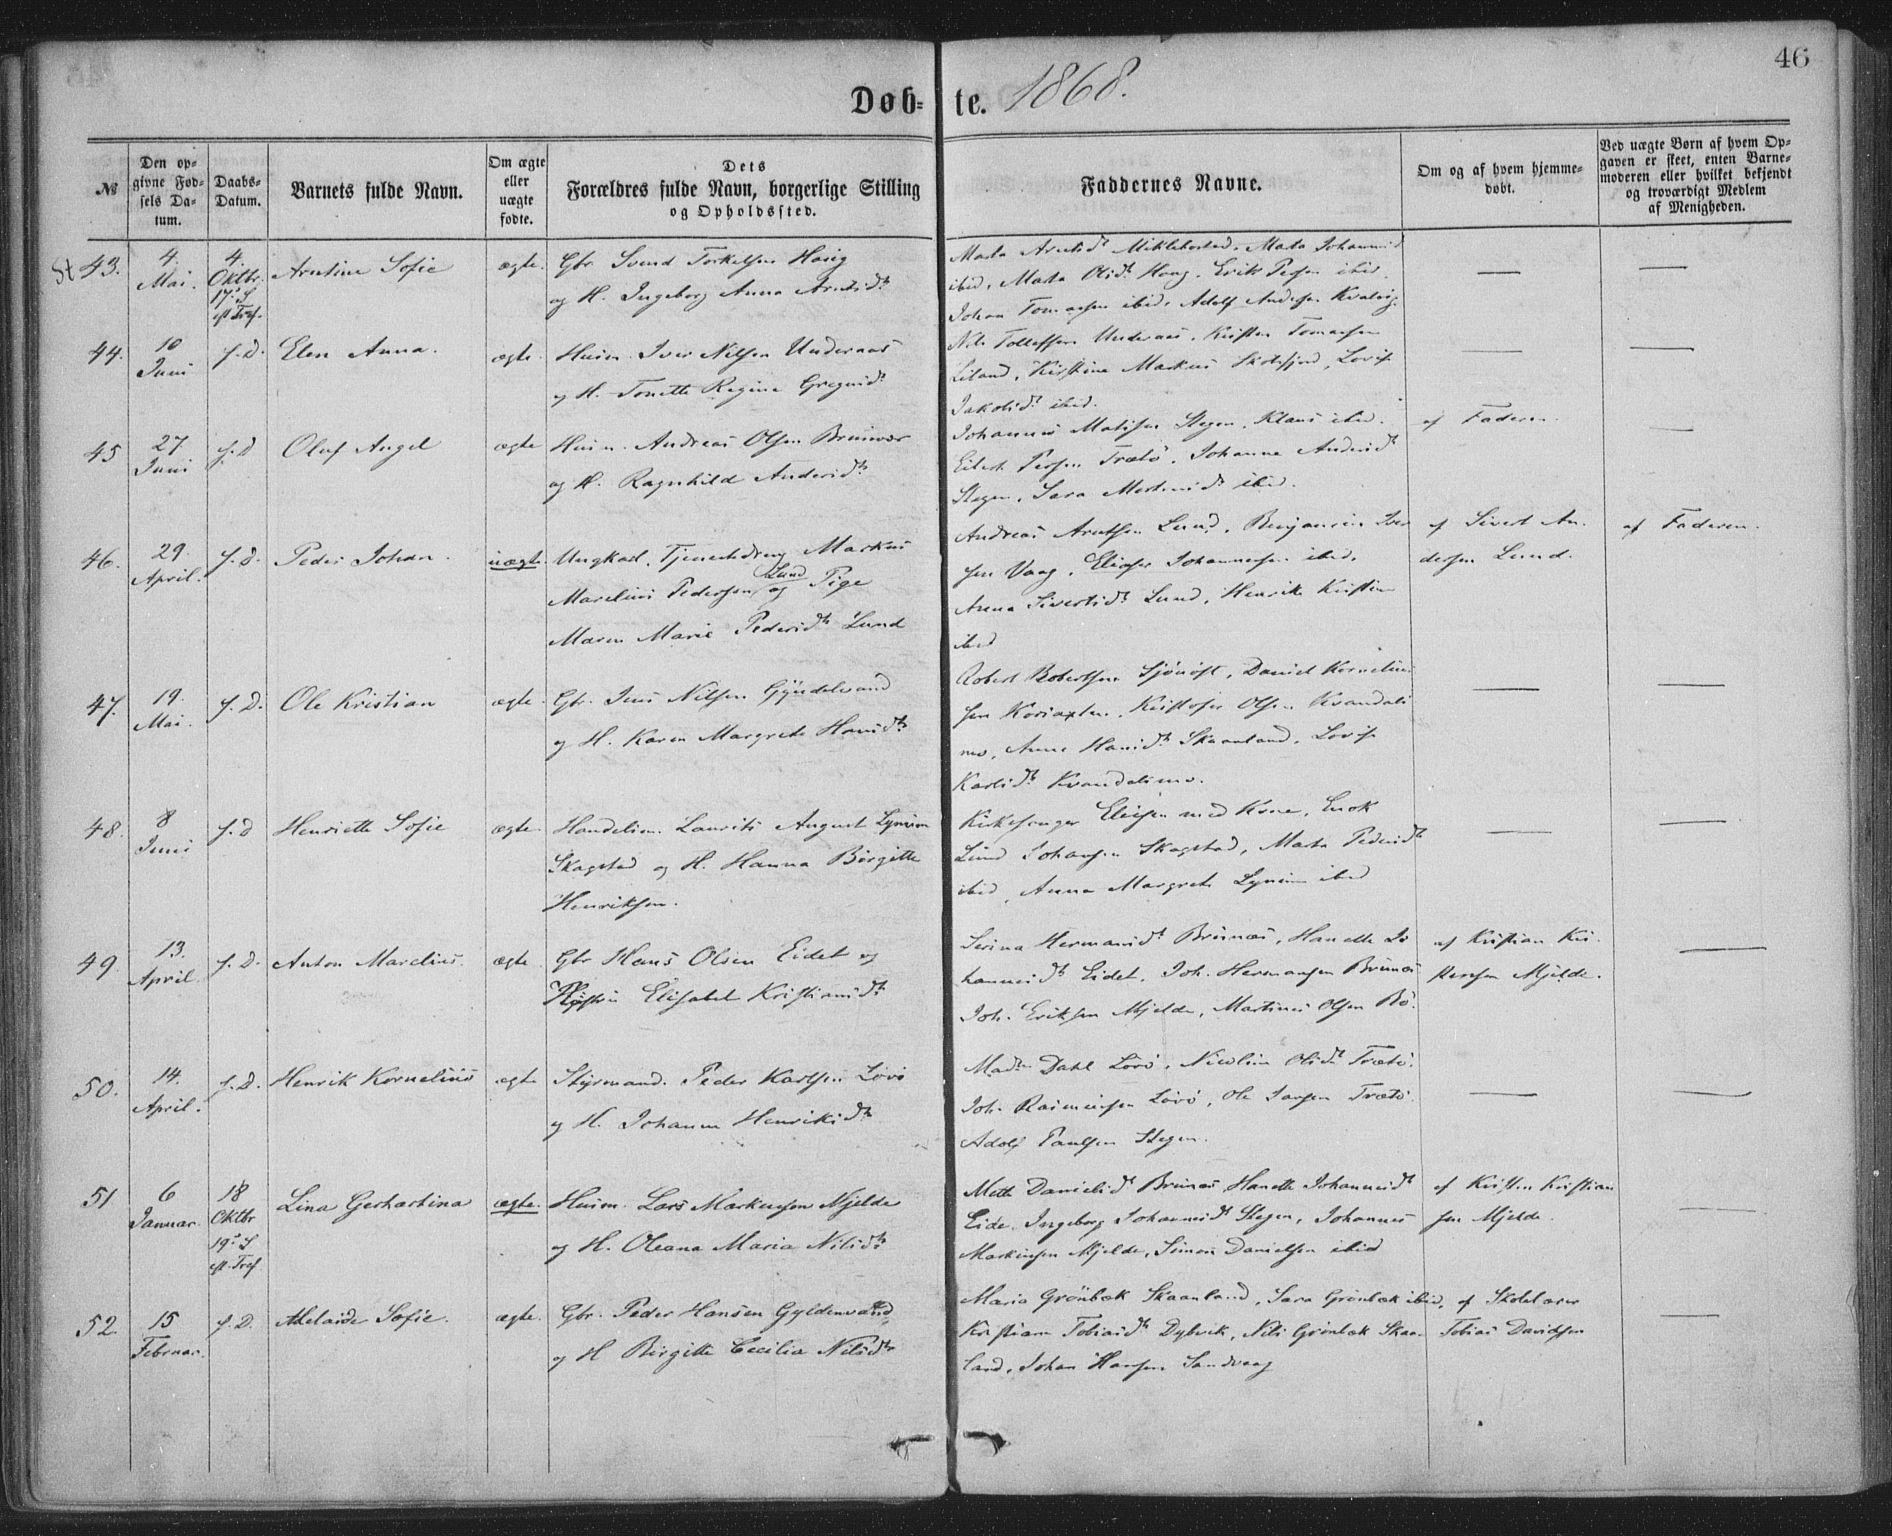 46
Døb- te. 1868.
№
Den op-
givne Fød-
sels Da-
tum.
Daabs-
Datum.
Barnets fulde Navn.
Om ægte
eller
uægte
fødte.
Dets
Forældres fulde Navn, borgerlige Stilling
og Opholdssted.
Faddernes Navne.
Om og af hvem hjemme-
døbt.
Ved uægte Børn af hvem Op-
gaven er skeet, enten Barne-
moderen eller hvilket bekjendt
og troværdigt Medlem
af Menigheden.
St 43.
4.
Mai.
4.
Oktbr.
17. S
eft Tref.
Arntine Sofie
ægte.
Gbr. Svend Torkelsen
og H. Ingeborg Anna Arntsdt.
Marta Arntsdt. Mikkelbostad, Marta Johannesd
ibid, Marta Olsdt. Haug, Erik Persen ibid.
Johan Tomassen ibid, Adolf Andersen
44.
10
Juni
s. D.
Elen Anna.
ægte.
Husm. Iver Nilsen Undernæs
og H. Tonette Regine
Nils Tollefsen Undernæs, Kristen Tomassen
Liland, Kirstine Markus
Jakobsdt. ibid.
45
27
Juni
s. D
Oluf Angel
ægte
Husm. Andreas Olsen Brunvær
og H. Ragnhild Andersdt.
Johannes Matisen Stegen, Klaus ibid.
Eilert Persen Trætø, Johanna Andersdt
Stegen, Sara ibid.
af Faderen
46.
29.
April.
s. D.
Peder Johan.
uægte.
Ungkarl, Tjenestedreng Markus
Marelius Pedersen Lund og Pige
Maren Marie Pedersdt. Lund
Andreas Arntsen Lund, Benjamin Iver
sen Vaag, Elias Johannesen ibid,
Anna Sivertsdt. Lund, Henrik Kristian
ibid
af Sivert An-
dersen Lund.
af Faderen.
47.
19.
Mai.
s. D.
Ole Kristian
ægte.
Gbr. Jens Nilsen Gyldelvand
og H. Karen Margrete Hansdt.
Robert Robertsen Sjönöst, Daniel Kornelius
sen, Kristofer Olsen Kvandals
mo, Anne Hansdt. Skaanland, Lovise
Karlsdt. Kvandalsmo.
48.
8
Juni
s. D
Henriette Sofie
ægte.
Handelsm. Laurits August Lynum
Skagstad og H. Hanna Börgitte
Henriksen.
Kirkesanger Eliasen med Kone, Enok
Lund Johansen Skagstad, Marta Pedersdt
ibid, Anna Margrete Lynum ibid
49.
13.
April.
s. D.
Anton Marelius.
ægte.
Gbr Hans Olsen Eidet og
Elisabet Kristiansdt.
Serina Hermansdt. Brunæs, Hanette Jo
hannesdt. Eidet, Joh. Hermansen Brunæs
Joh. Eriksen Mjelde, Martines Olsen Bö.
af Kristian Kri-
stensen Mjelde.
50.
14.
April.
s. D.
Henrik Kornelius
ægte
Styrmand. Peder Karlsen Lövö
og H. Johanna Henriksdt.
Madm Dahl Lövö, Nicoline Olsdt. Trætö.
Joh. Rasmussen Lövö, Ole Jansen Trætö.
Adolf Paulsen Stegen.
51
6
Januar.
18
Oktbr
19. S
eft. Tref
Lina Gerhartina
ægte.
Husm. Lars Markussen Mjelde
og H. Oleana Maria Nilsdt.
Mette Danielsdt. Brunæs, Hanette Johannesdt.
Eide. Ingeborg Johannesdt. Stegen, Johannes
Markussen Mjelde, Simon Danielsen ibid
af Kristen Kristian
sen Mjelde.
52.
15
Februar.
s. D.
Adelaide Sofie.
ægte.
Gbr. Peder Hansen Gyldenvand,
og H Birgitte Cecilia Nilsdt.
Maria Grönbæk Skaanland, Sara Grönbæk ibid,
Kristiane Tobiasdt. Dybvik, Nils Grönbæk Skaan-
land, Johan Hansen Sandvaag
af Skolelærer
Tobias Davidsen